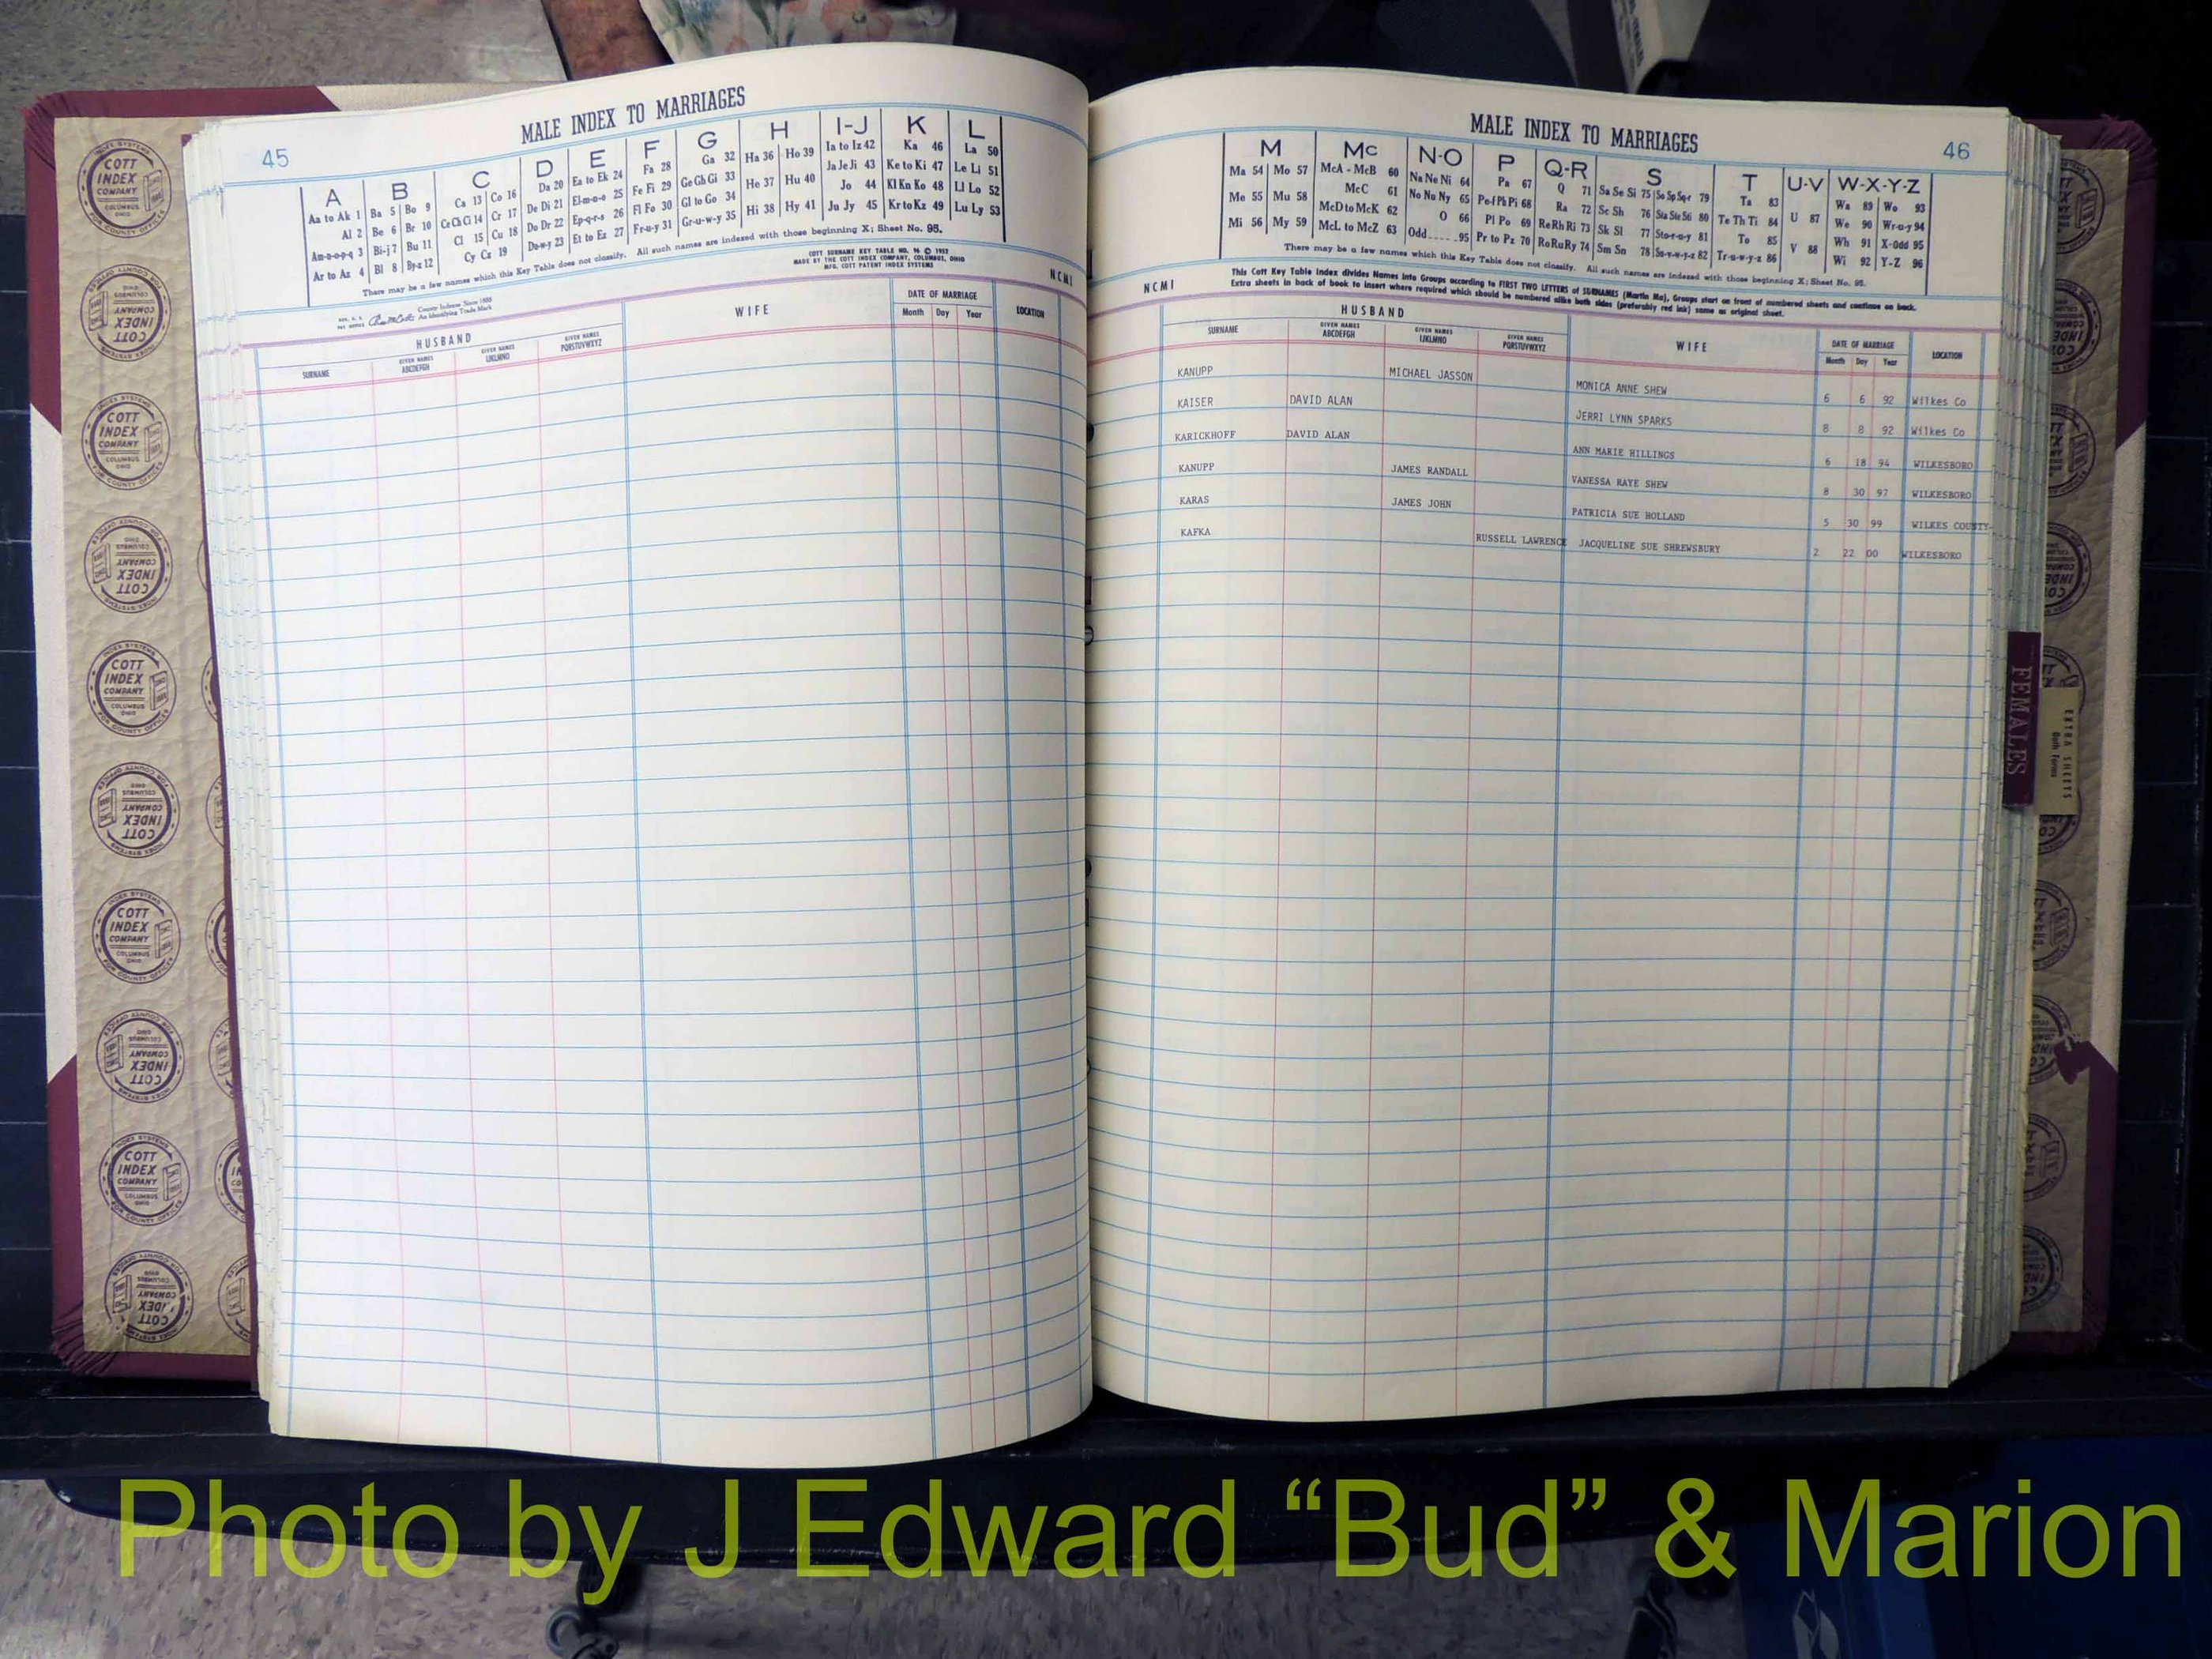 45
MALE INDEX TO MARRIAGES
A B C D E F G H I-J K L
Aa to Ak 1 Ba 5 Bo 9 Ca 13 Co 16 Da 20 Ea to Ek 24 Fa 28 Ga 32 Ha 36 Ho 39 Ia to Iz 42 Ka 46 La 50
Al 2 Be 6 Br 10 Ce Ch Ci 14 Cr 17 De Di 21 El-m-n-o 25 Fe Fi 29 Ge Gh Gi 33 He 37 Hu 40 Ja Je Ji 43 Ke to Ki 47 Le Li 51
Am-n-o-p-q 3 Bi-j 7 Bu 11 Cl 15 Cu 18 Do Dr 22 Ep-q-r-s 26 Fl Fo 30 Gl to Go 34 Hi 38 Hy 41 Jo 44 Kl Kn Ko 48 Ll Lo 52
Ar to Az 4 Bl 8 By-z 12 Cy Cz 19 Du-w-y 23 Et to Ez 27 Fr-u-y 31 Gr-u-w-y 35 Ju Jy 45 Kr to Kz 49 Lu Ly 53
There may be a few names which this Key Table does not classify. All such names are indexed with those beginning X; Sheet No. 95.
COTT SURNAME KEY TABLE NO. 96 © 1952
MADE BY THE COTT INDEX COMPANY, COLUMBUS, OHIO
MFG. COTT PATENT INDEX SYSTEMS
NCMI
County Indexes Since 1888
An Identifying Trade Mark
HUSBAND WIFE DATE OF MARRIAGE LOCATION
SURNAME GIVEN NAMES ABCDEFGH GIVEN NAMES IJKLMNO GIVEN NAMES PQRSTUVWXYZ Month Day Year
MALE INDEX TO MARRIAGES
46
M Mc N-O P Q-R S T U-V W-X-Y-Z
Ma 54 Mo 57 McA - McB 60 Na Ne Ni 64 Pa 67 Q 71 Sa Se Si 75 So Sp Sq-r 79 Ta 83 U 87 Wa 89 Wo 93
Me 55 Mu 58 McC 61 No Nu Ny 65 Pe-f Ph Pi 68 Ra 72 Sc Sh 76 Sta Ste Sti 80 Te Th Ti 84 V 88 We 90 Wr-u-y 94
Mi 56 My 59 McD to McK 62 O 66 Pl Po 69 Re Rh Ri 73 Sk Sl 77 Sto-r-u-y 81 To 85 Wh 91 X-Odd 95
McL to McZ 63 Odd 95 Pr to Pz 70 Ro Ru Ry 74 Sm Sn 78 Su-v-w-y-z 82 Tr-u-w-y-z 86 Wi 92 Y-Z 96
There may be a few names which this Key Table does not classify. All such names are indexed with those beginning X; Sheet No. 95.
NCMI
This Cott Key Table Index divides Names into Groups according to FIRST TWO LETTERS of SURNAMES (Martin Ma), Groups start on front of numbered sheets and continue on back.
Extra sheets in back of book to insert where required which should be numbered alike both sides (preferably red ink) same as original sheet.
HUSBAND WIFE DATE OF MARRIAGE LOCATION
SURNAME GIVEN NAMES ABCDEFGH GIVEN NAMES IJKLMNO GIVEN NAMES PQRSTUVWXYZ Month Day Year
KANUPP MICHAEL JASSON MONICA ANNE SHEW 6 6 92 Wilkes Co
KAISER DAVID ALAN JERRI LYNN SPARKS 8 8 92 Wilkes Co
KARICKHOFF DAVID ALAN ANN MARIE HILLINGS 6 18 94 WILKESBORO
KANUPP JAMES RANDALL VANESSA RAYE SHEW 8 30 97 WILKESBORO
KARAS JAMES JOHN PATRICIA SUE HOLLAND 5 30 99 WILKES COUNTY
KAFKA RUSSELL LAWRENCE JACQUELINE SUE SHREWSBURY 2 22 00 WILKESBORO
FEMALES
EXTRA SHEETS
Both Forms
COTT INDEX COMPANY
COLUMBUS OHIO
INDEX SYSTEMS
FOR COUNTY OFFICES
Photo by J Edward “Bud” & Marion